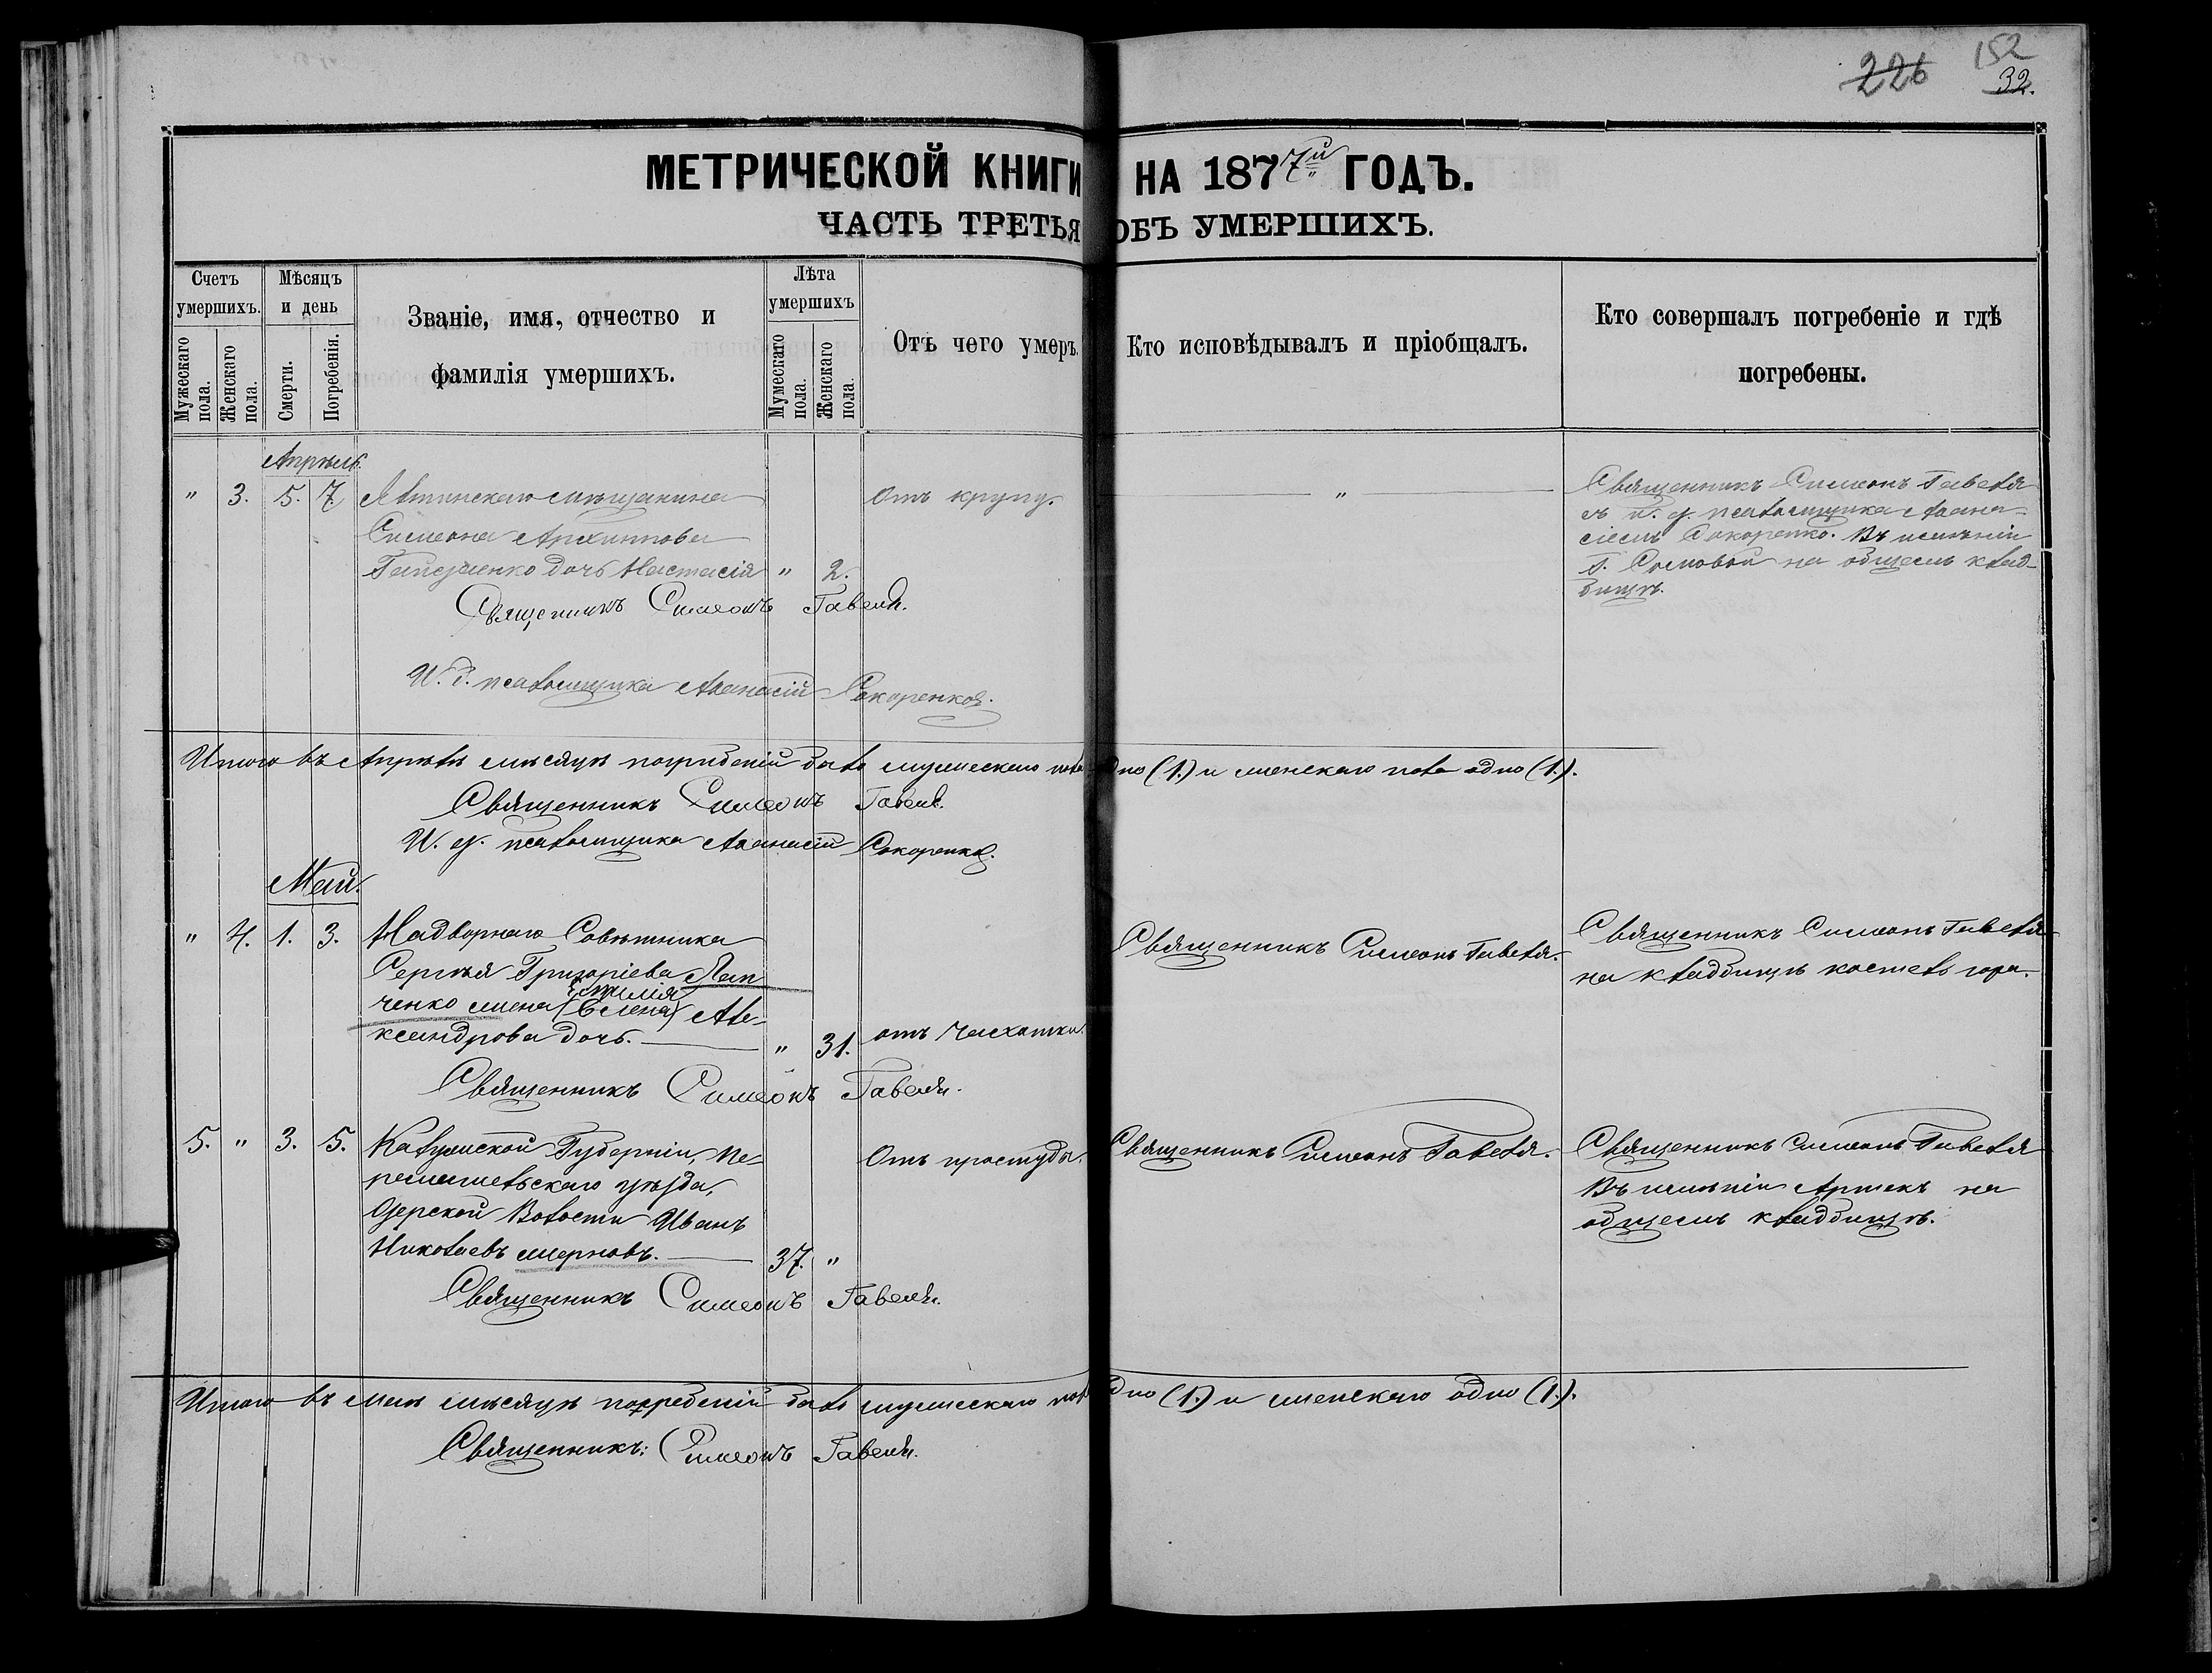 226 152
32.
МЕТРИЧЕСКОЙ КНИГИ НА 1877й ГОДЪ.
ЧАСТЬ ТРЕТЬЯ ОБЪ УМЕРШИХЪ.
Счетъ умершихъ.
Мужескаго пола.
Женскаго пола.
Мѣсяцъ и день
Смерти.
Погребенія.
Званіе, имя, отчество и
фамилія умершихъ.
Лѣта умершихъ
Мумескаго пола.
Женскаго пола.
Отъ чего умеръ.
Кто исповѣдывалъ и пріобщалъ.
Кто совершалъ погребеніе и гдѣ
погребены.
Апрѣль.
" 3. 5. 7. Ялтинскаго мѣщанина
Симеона Архиппова
дочь Настасія " 2.
отъ крупу.
"
Священникъ Симеонъ Гавеля
съ и. д. псаломщика Афана-
сіемъ Сокоренко. Въ имѣніи
Г. Сомовой на общемъ клад-
бищѣ.
Священникъ Симеонъ Гавеля.
И. д. псаломщика Афанасій Сокоренков.
Итого въ Апрѣлѣ мѣсяцѣ погребеній было мужескаго пола одно (1.) и женскаго пола одно (1.).
Священникъ Симеонъ Гавеля.
И. д. псаломщика Афанасій Сокоренко.
Май.
" 4. 1. 3. Надворнаго Совѣтника
Сергѣя Григоріева Пан
ченко жена (Елена) Але-
Эмилія
ксандрова дочь. " 31.
отъ чахотки.
Священникъ Симеонъ Гавеля.
Священникъ Симеонъ Гавеля
на кладбищѣ костелъ гора.
Священникъ Симеонъ Гавеля.
5. " 3. 5. Калужской Губерніи, Пе-
ремышльскаго уѣзда,
Озерской Волости Иванъ
Николаевъ жерновъ. 37. "
Отъ простуды.
Священникъ Симеонъ Гавеля.
Священникъ Симеонъ Гавеля
Въ имѣніи Артекъ на
общемъ кладбищѣ.
Священникъ Симеонъ Гавеля.
Итого въ Маѣ мѣсяцѣ погребеній было мужескаго пол одно (1.) и женскаго одно (1.).
Священникъ: Симеонъ Гавеля.